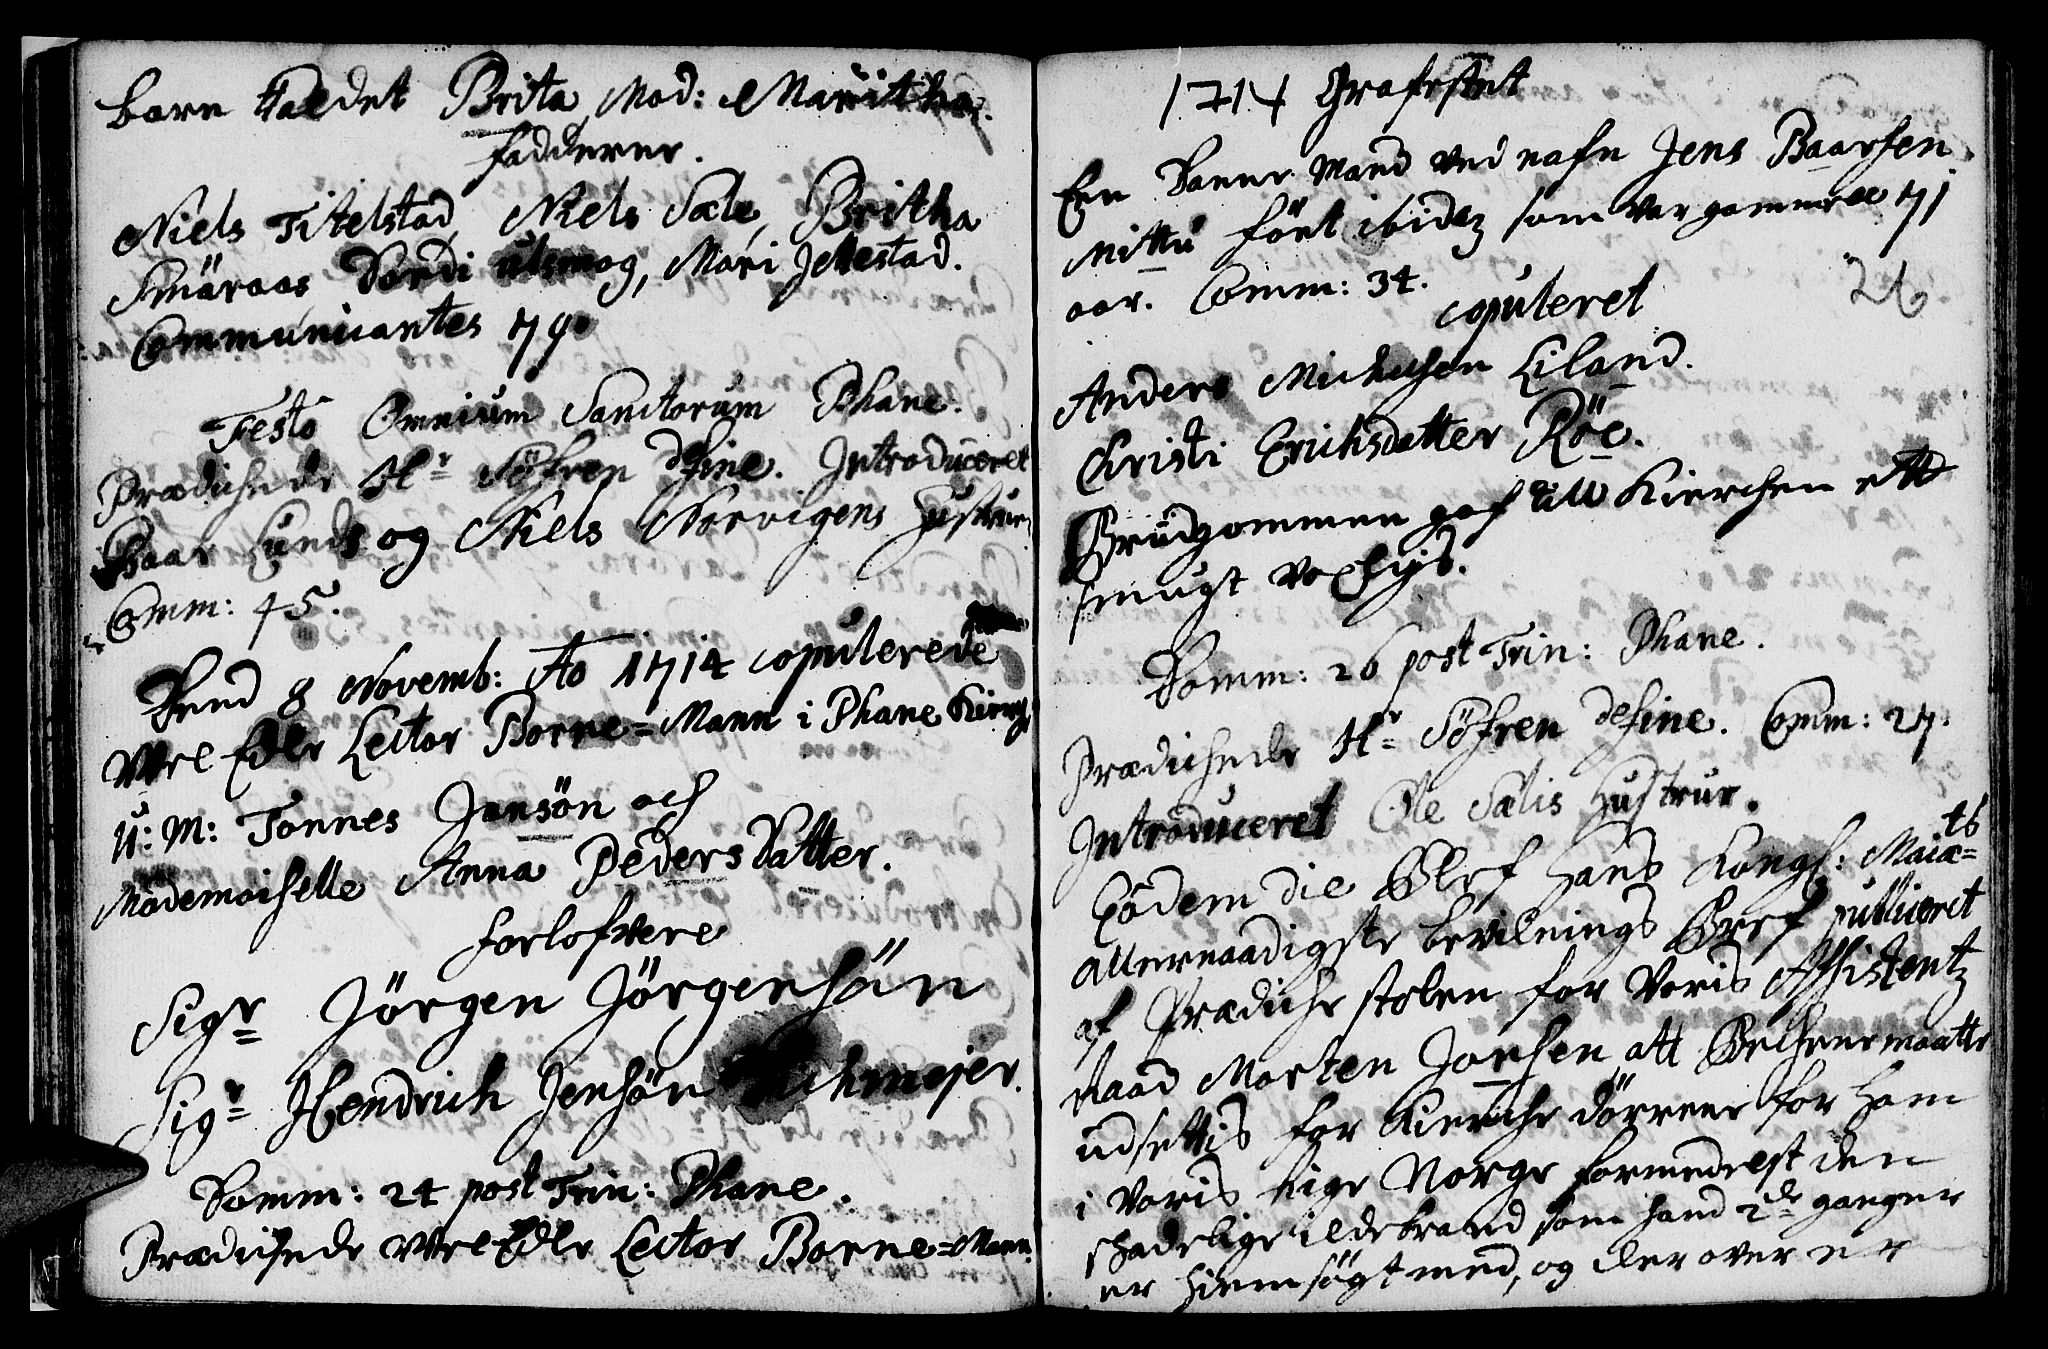 barn kaldet Brita, Mod: Maritha.
fadderne.
Niels Titelstad, Niels Sæle, Britha
Smäraas Dordi utsmog, Mari Jellestad.
Communicantes 79.
Festo Omnium Sanctorum Phane.
Prædichede Hr Söfren define. Introduceret
Baar Lunds og Niels Norvigens Hustruer
Comm: 45.
Dend 8 Novemb: Ao 1714 copulerede
Wel Edle Lector Borne=Mann i Phane Kirche
U: M: Tonnes Jansön och
Mademoiselle Anna Peders Datter.
forlofvere
Sigr Jörgen Jörgensön
Sigr Hendrich Jensön
Domm: 24 post Trin: Phane.
Prædichede Wel Edle Lector Borne=Mann.
1714 Grafestet
Een Danne Mand ved nafn Jens Baarsen
Mittu fört ibidem som var gammel 71
aar. Comm: 34.
26
copuleret
Anders Michelsen Liland.
Christi Erichsdatter Röe.
Brüdgommen gaf till Kierchen ett
smugt voxlius.
Domm: 26 post Trin: Phane.
Prædichede Hr Söfren define. Comm: 27.
Introduceret Ole Sælis Hustrue.
Eodem die Blef Hans Kongl: Maiæ=ts
allernaadigste bevilnings Bref publiceret
af Prædiche stolen for Voris Assistentz
Raad Morten Jonsen att Bechene maatte
udsettis for Kierche dörrene for ham
i Voris Rige Norge formedelst den
skadelige ildebrand som hand 2de ganger
er hiemsögt med, og der over er